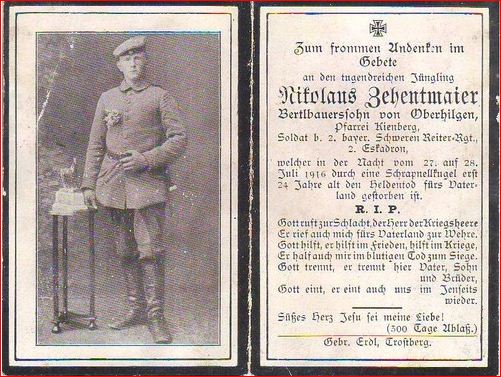 Zum frommen Andenken im
Gebete
an den tugendreichen Jüngling
Nikolaus Zehentmaier
Bertlbauerssohn von Oberhilgen,
Pfarrei Kienberg,
Soldat b. 2. bayer. Schweren Reiter-Rgt.
2. Eskadron,
welcher in der Nacht vom 27. auf 28.
Juli 1916 durch eine Schrapnellkugel erst
24 Jahre alt den Heldentod fürs Vater-
land gestorben ist.
R. I. P.
Gott ruft zur Schlacht, der Herr der Kriegsheere
Er rief auch mich fürs Vaterland zur Wehre.
Gott hilft, er hilft im Frieden, hilft im Kriege,
Er half auch mir im blutigen Tod zum Siege.
Gott trennt, er trennt hier Vater, Sohn
und Brüder,
Gott eint, er eint auch uns im Jenseits
wieder.
Süßes Herz Jesu sei meine Liebe!
(300 Tage Ablaß.)
Gebr. Erdl, Trostberg.